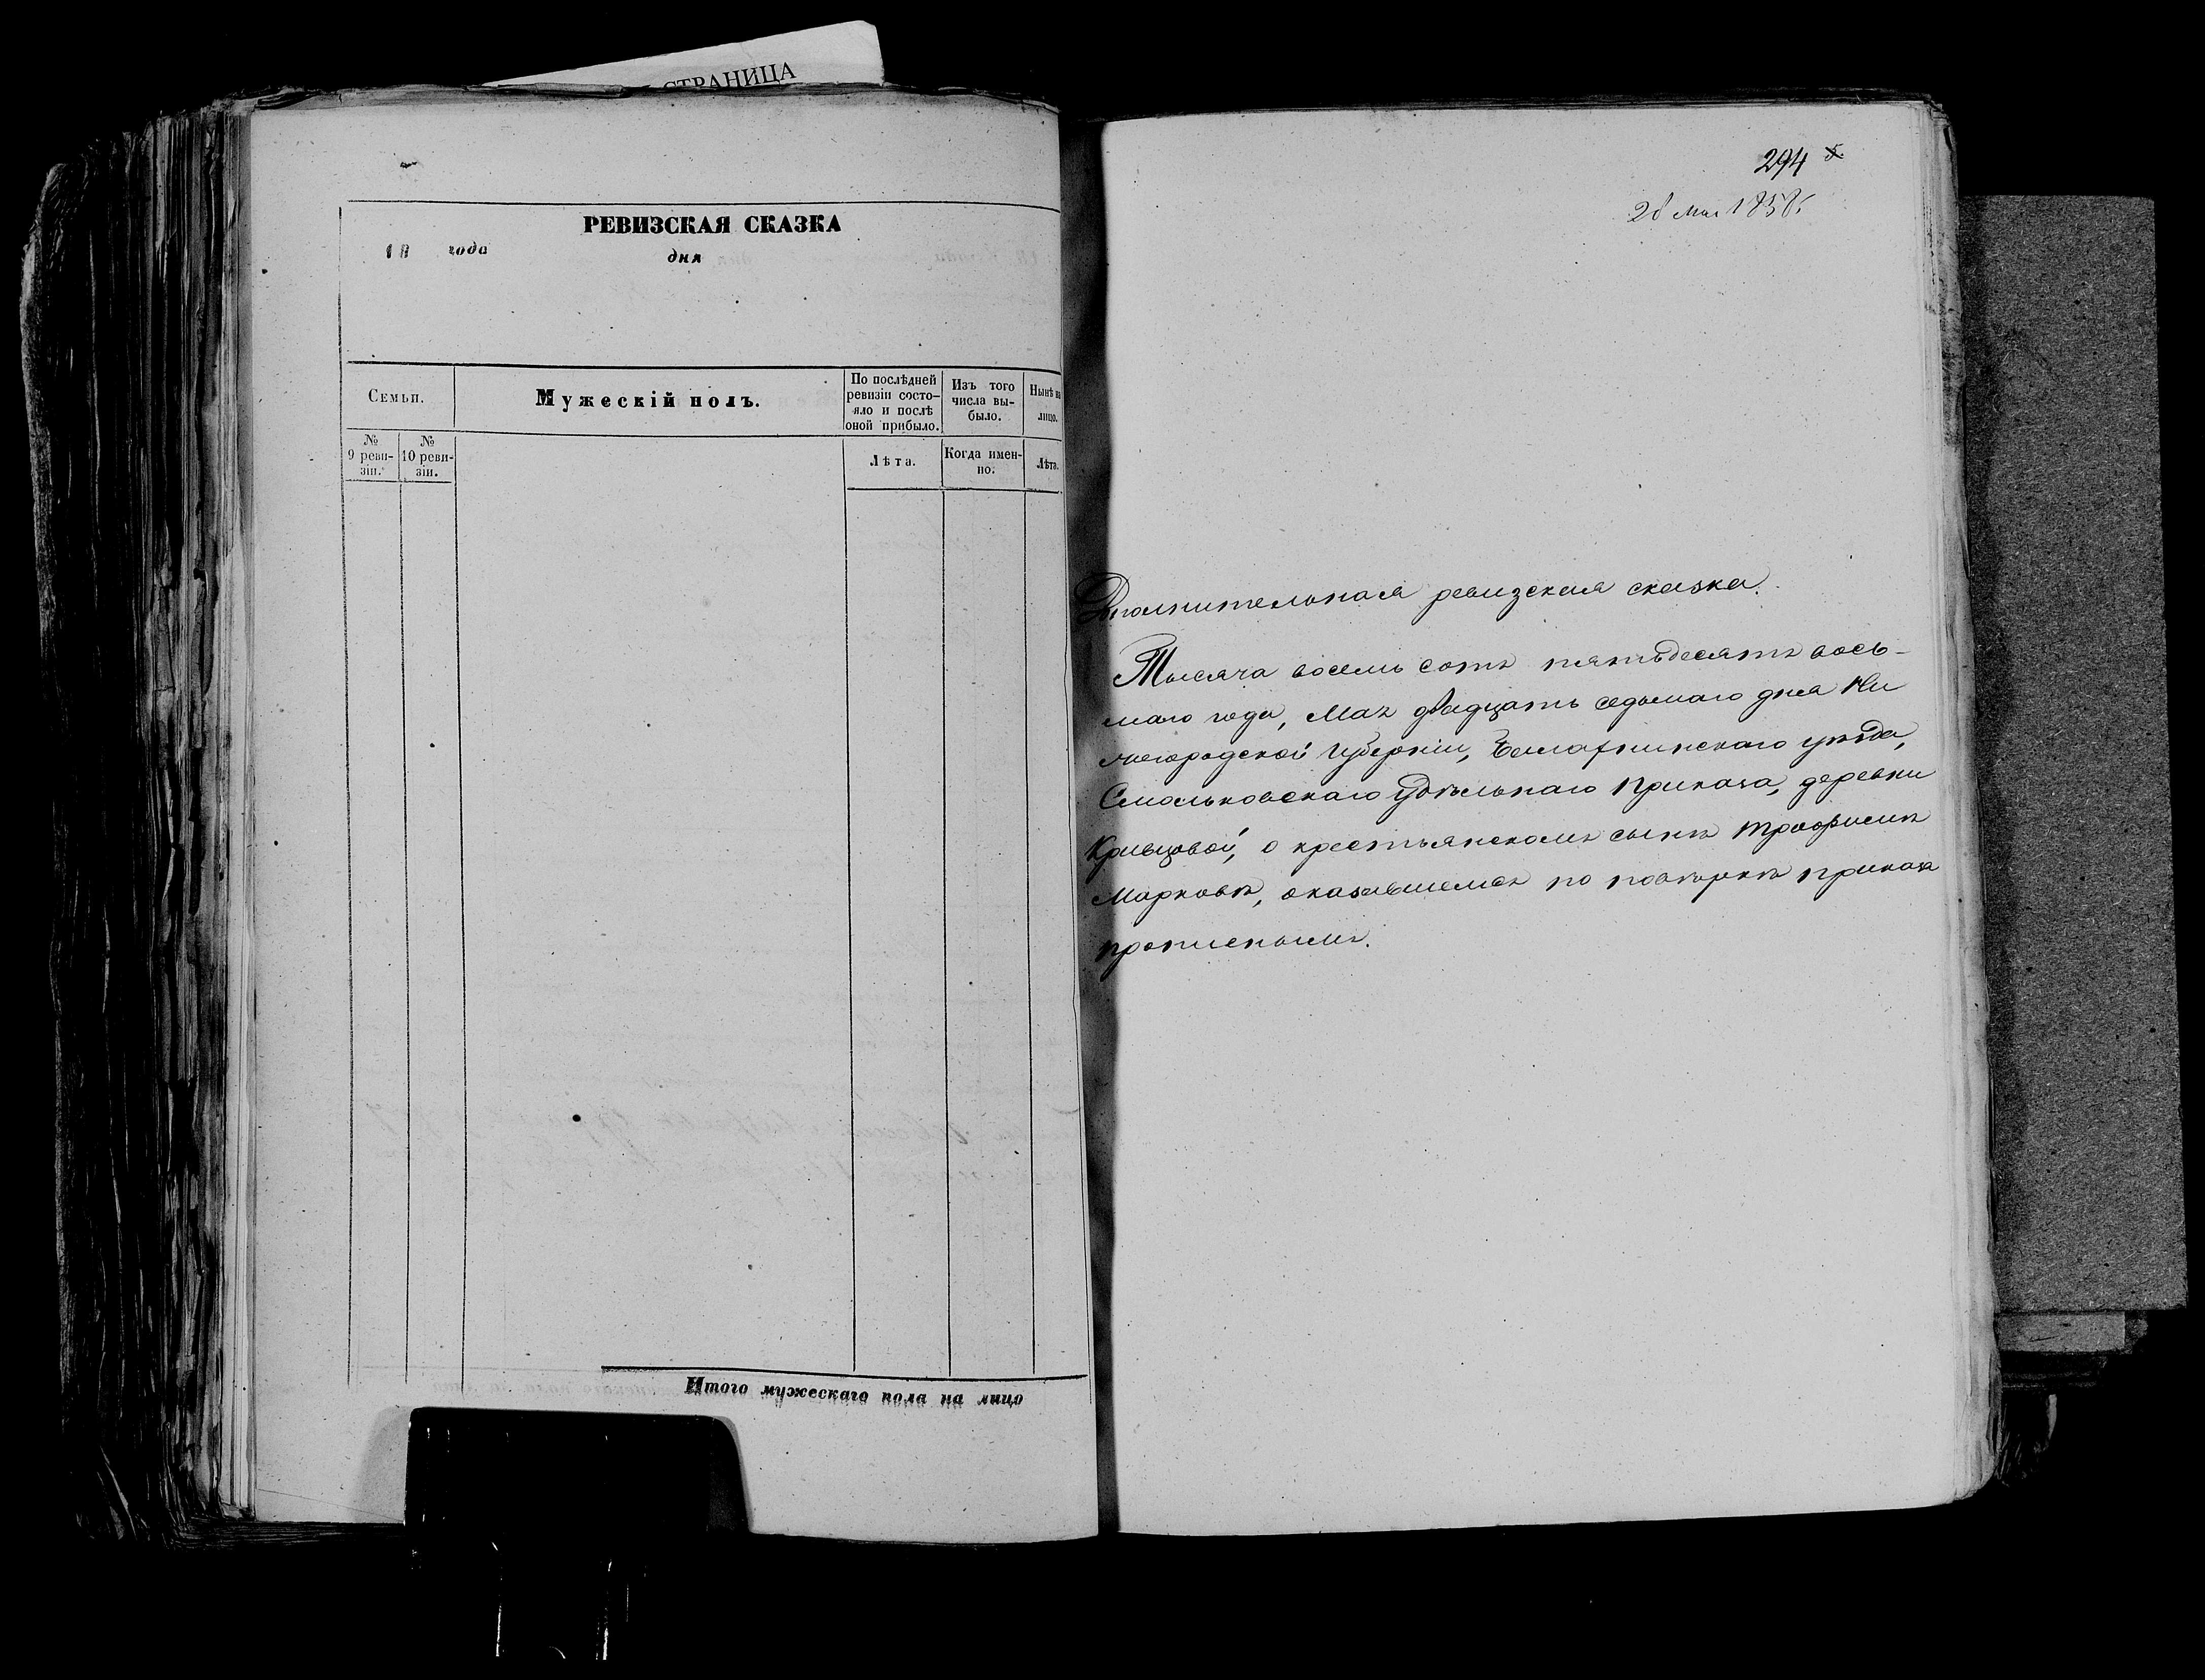 СТРАНИЦА
РЕВИЗСКАЯ СКАЗКА
18 года дня
Семьи.
Мужескій полъ.
По послѣдней
ревизіи состо-
яло и послѣ
оной прибыло.
Изъ того
числа вы-
было.
Нынѣ на
лицо.
№
9 реви-
зіи.
№
10 реви-
зіи.
Лѣта.
Когда имен-
но.
Лѣта.
Итого мужескаго пола на лицо
294
28 Мая 1858 г.
Дополнительная ревизская сказка.
Тысяча восемь сотъ пятьдесятъ вось-
маго года, Мая двадцать седьмаго дня Ни
жегородской Губерніи, уѣзда,
Смольковскаго Удѣльнаго Приказа, деревни
Кривцовой, о крестьянскомъ сынѣ Трофимѣ
Марковѣ, оказавшемся по повѣркѣ приказа
прописнымъ.